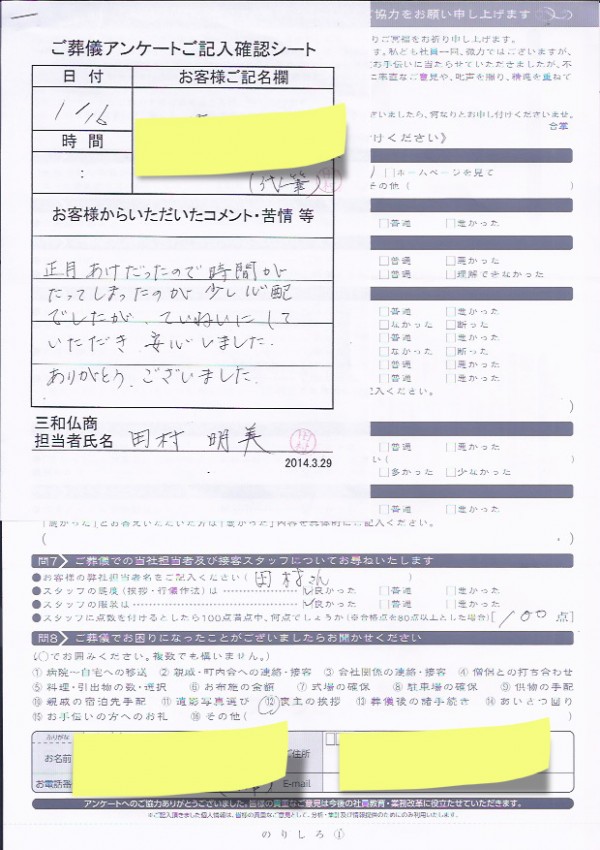 ご協力をお願い申し上げます
りご冥福をお祈り申し上げます。
ご葬儀アンケートご記入確認シート
す。私ども社員一同、微力ではございますが、
日付
お客様ご記名欄
お手伝いに当たらせていただきましたが、不
1/16
時間
:
(代筆)
合掌
けください》
ホームページを見て
その他(
お客様からいただいたコメント・苦情 等
普通 悪かった
普通 悪かった
普通 理解できなかった
正月あけだったので時間が
たってしまったのが少し心配
でしたが、ていねいにして
いただき安心しました。
ありがとうございました。
普通 悪かった
なかった 断った
普通 悪かった
なかった 断った
普通 悪かった
普通 悪かった
記入ください。
三和仏商
担当者氏名 田村 明美
2014.3.29
普通 悪かった
い(
多かった 少なかった
普通 悪かった
問7 ご葬儀での当社担当者及び接客スタッフについてお尋ねいたします
●お客様の弊社担当者名をご記入ください( 田村さん )
●スタッフの態度(挨拶・行儀作法)は 良かった 普通 悪かった
●スタッフの服装は 良かった 普通 悪かった
●スタッフに点数を付けるとしたら100点満点中、何点でしょうか(※合格点を80点以上とした場合)[100 点]
問8 ご葬儀でお困りになったことがございましたらお聞かせください
(○でお囲みください。複数でも構いません。)
①病院→自宅への移送 ②親戚・町内会への連絡・接客 ③会社関係の連絡・接客 ④僧侶との打ち合わせ
⑤料理・引出物の数・選択 ⑥お布施の金額 ⑦式場の確保 ⑧駐車場の確保 ⑨供物の手配
⑩親戚の宿泊先手配 ⑪遺影写真選び ⑫喪主の挨拶 ⑬葬儀後の諸手続き ⑭あいさつ回り
⑮お手伝いの方へのお礼 ⑯その他( )
ふりがな
お名前
ご住所
お電話番号
E-mail
アンケートへのご協力ありがとうございました。皆様の貴重なご意見は今後の社員教育・業務改革に役立たせていただきます。
※ご記入頂きました個人情報は、皆様の貴重なご意見として、分析・集計及び情報提供のためにのみ利用いたします。
のりしろ①